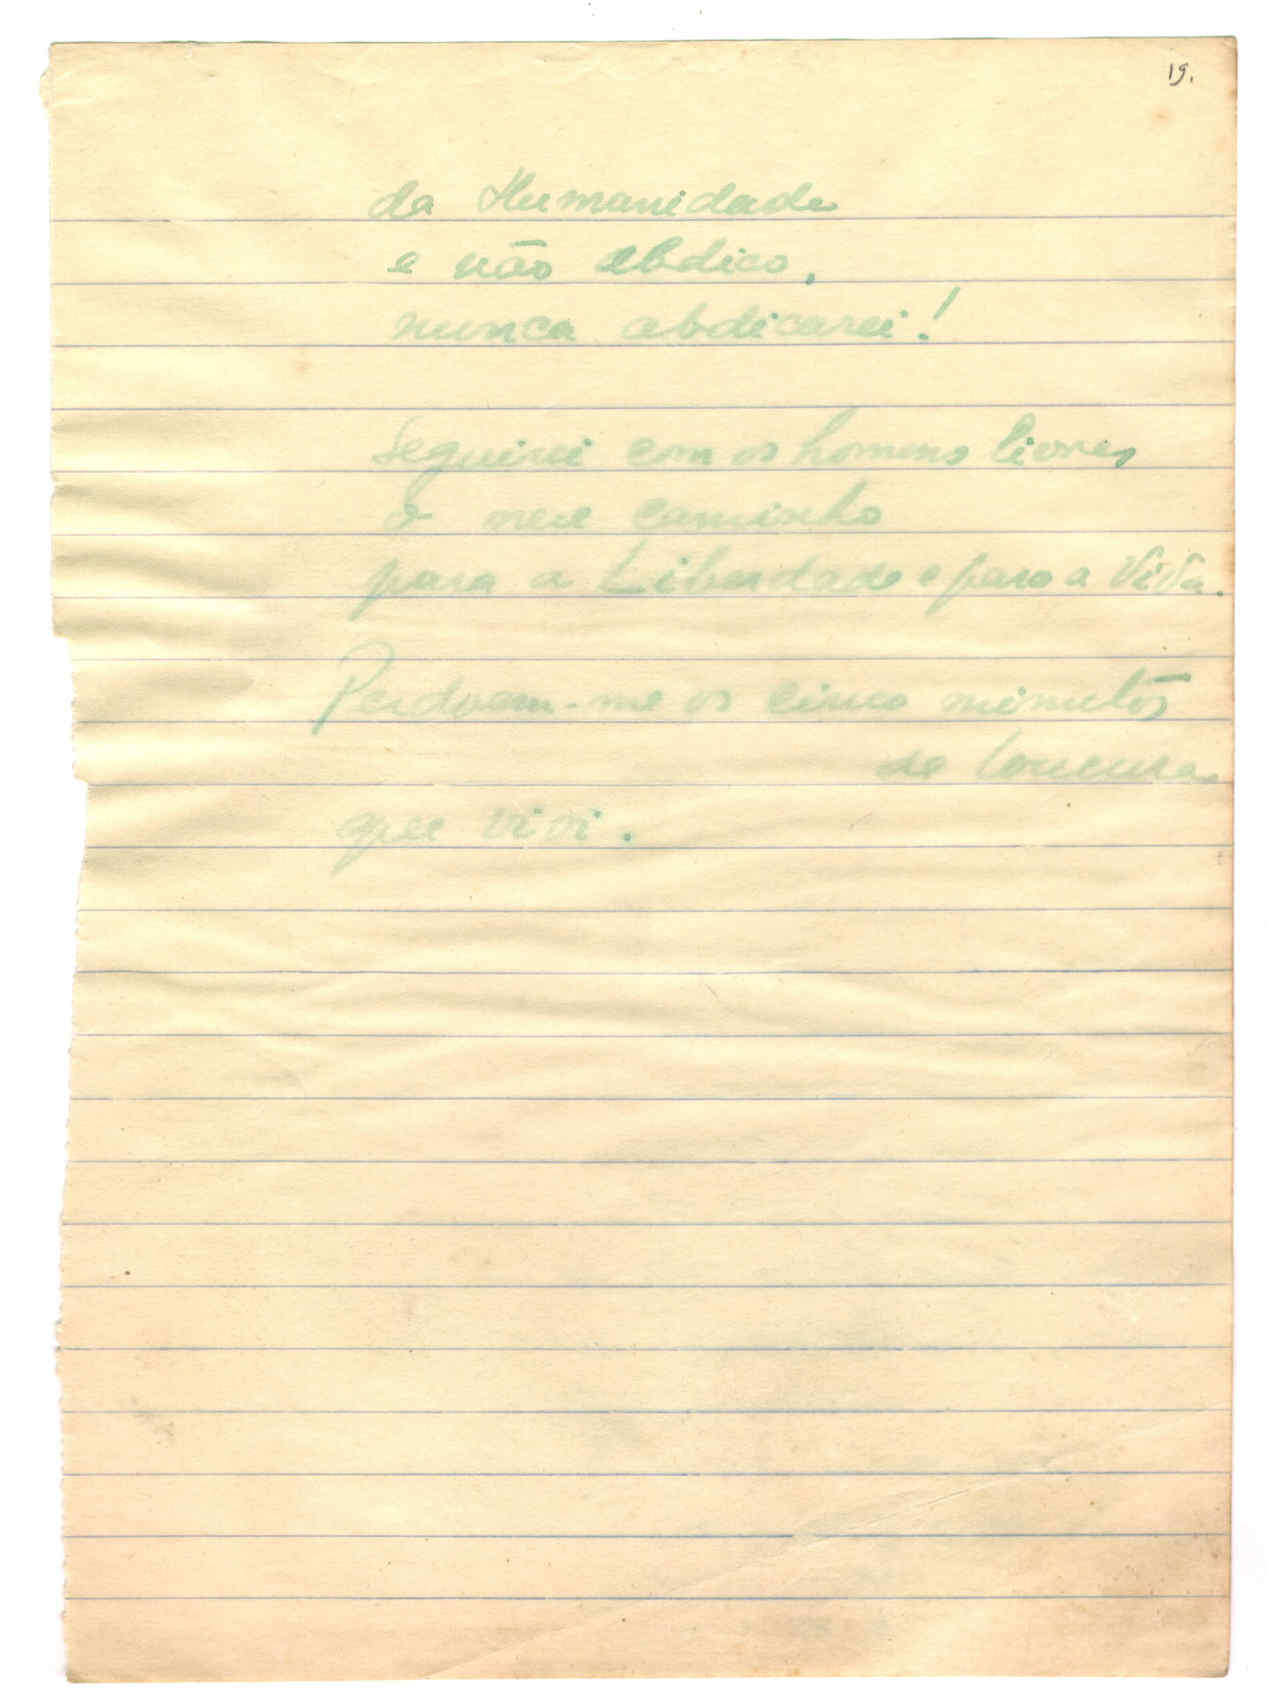 19.
da Humanidade
e não abdico,
nunca abdicarei!
Seguirei com os homens livres
o meu caminho
para a Liberdade e para a Vida.
Perdoem-me os cinco minutos
de loucura
que vivi.